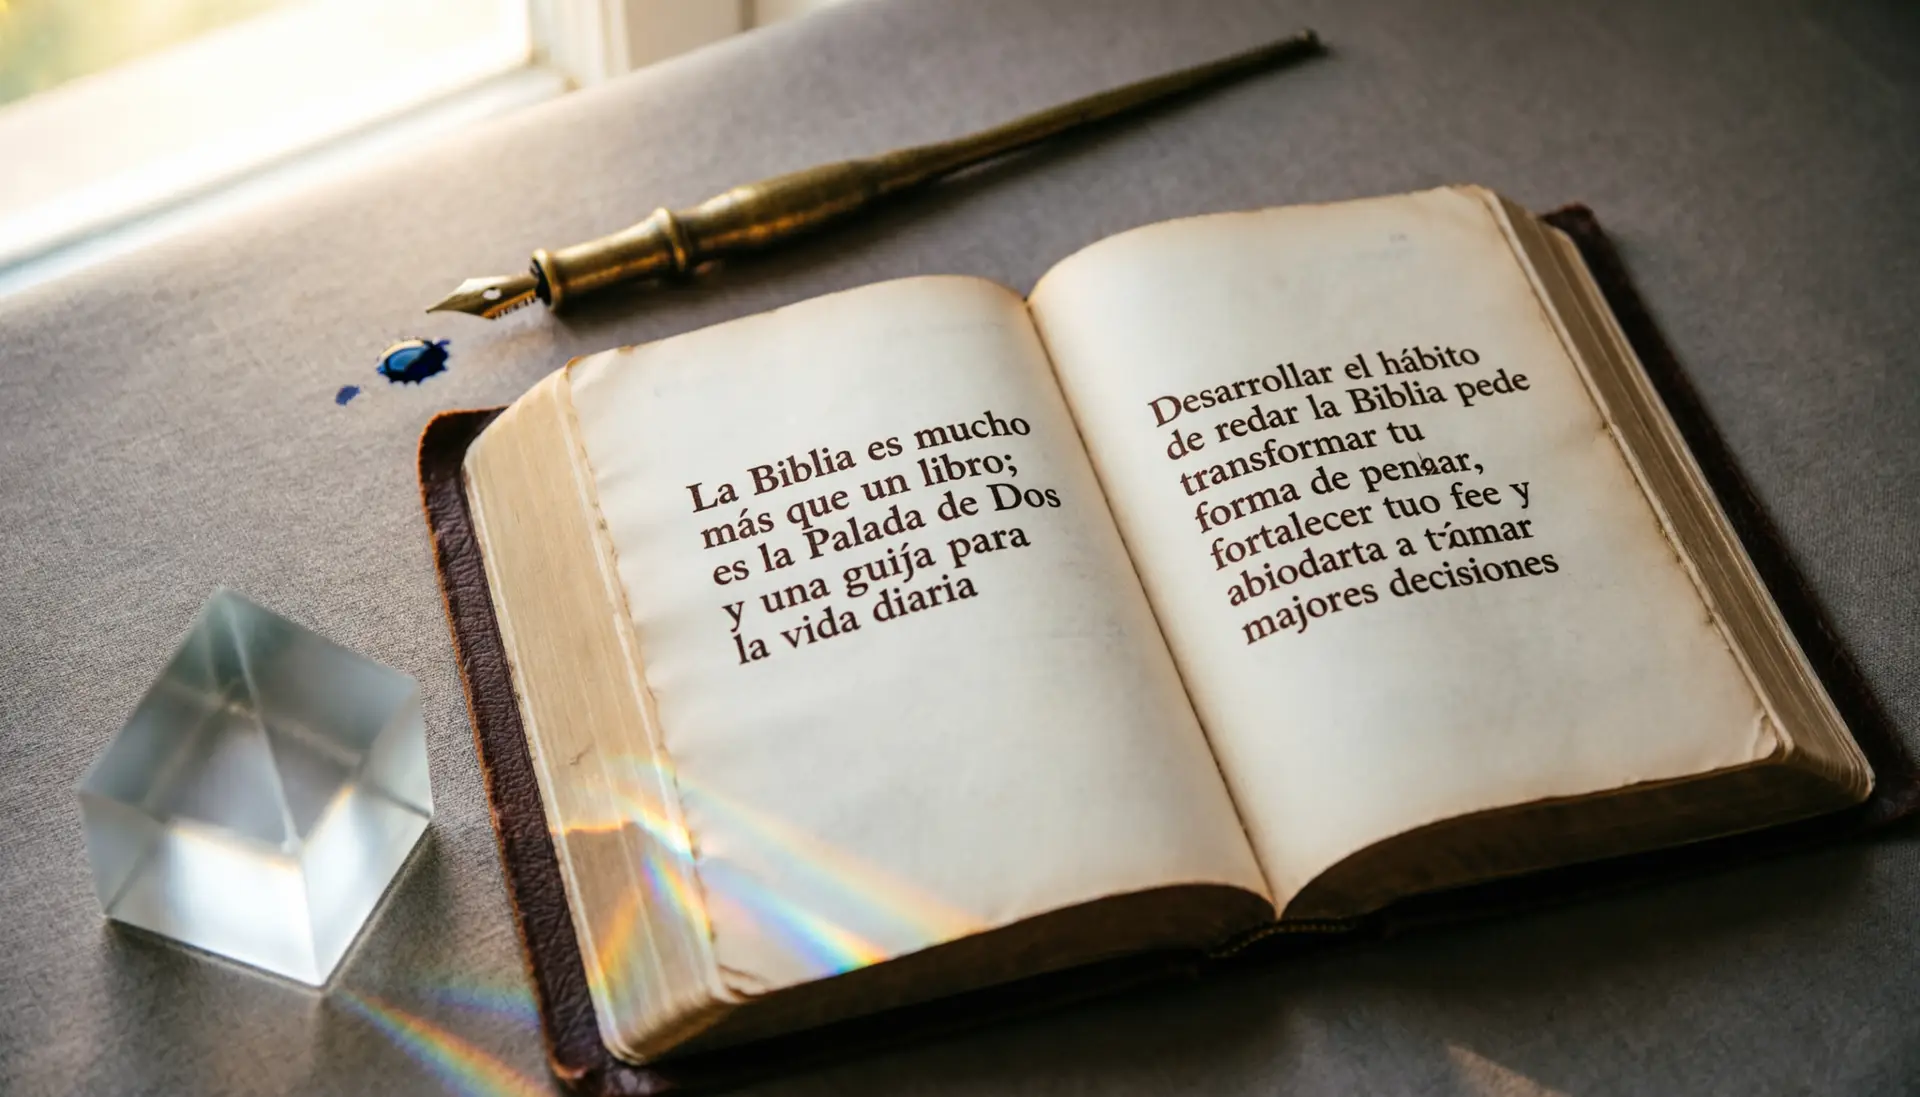 La Biblia es mucho
más que un libro;
es la Palada de Dos
y una guija para
la vida diaria
Desarrollar el hábito
de redar la Biblia pede
transformar tu
forma de
fortalecer tuo fee y
abiodarta a
majores decisiones